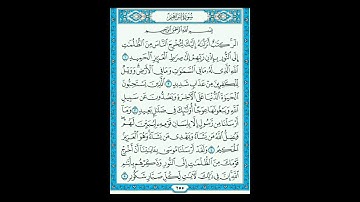 سُورَةُ إِبْرَاهِيمَ
بِسْمِ اللَّهِ الرَّحْمَٰنِ الرَّحِيمِ
الٓر كِتَٰبٌ أَنزَلْنَٰهُ إِلَيْكَ لِتُخْرِجَ ٱلنَّاسَ مِنَ ٱلظُّلُمَٰتِ
إِلَى ٱلنُّورِ بِإِذْنِ رَبِّهِمْ إِلَىٰ صِرَٰطِ ٱلْعَزِيزِ ٱلْحَمِيدِ ١
ٱللَّهِ ٱلَّذِى لَهُۥ مَا فِى ٱلسَّمَٰوَٰتِ وَمَا فِى ٱلْأَرْضِ وَوَيْلٌ
لِّلْكَٰفِرِينَ مِنْ عَذَابٍ شَدِيدٍ ٢ ٱلَّذِينَ يَسْتَحِبُّونَ
ٱلْحَيَوٰةَ ٱلدُّنْيَا عَلَى ٱلْءَاخِرَةِ وَيَصُدُّونَ عَن سَبِيلِ
ٱللَّهِ وَيَبْغُونَهَا عِوَجًا أُو۟لَٰٓئِكَ فِى ضَلَٰلٍۭ بَعِيدٍ ٣ وَمَآ
أَرْسَلْنَا مِن رَّسُولٍ إِلَّا بِلِسَانِ قَوْمِهِۦ لِيُبَيِّنَ لَهُمْ
فَيُضِلُّ ٱللَّهُ مَن يَشَآءُ وَيَهْدِى مَن يَشَآءُ وَهُوَ ٱلْعَزِيزُ
ٱلْحَكِيمُ ٤ وَلَقَدْ أَرْسَلْنَا مُوسَىٰ بِـَٔايَٰتِنَآ أَنْ أَخْرِجْ
قَوْمَكَ مِنَ ٱلظُّلُمَٰتِ إِلَى ٱلنُّورِ وَذَكِّرْهُم بِأَيَّىٰمِ
ٱللَّهِ إِنَّ فِى ذَٰلِكَ لَءَايَٰتٍ لِّكُلِّ صَبَّارٍ شَكُورٍ ٥
٢٥٥